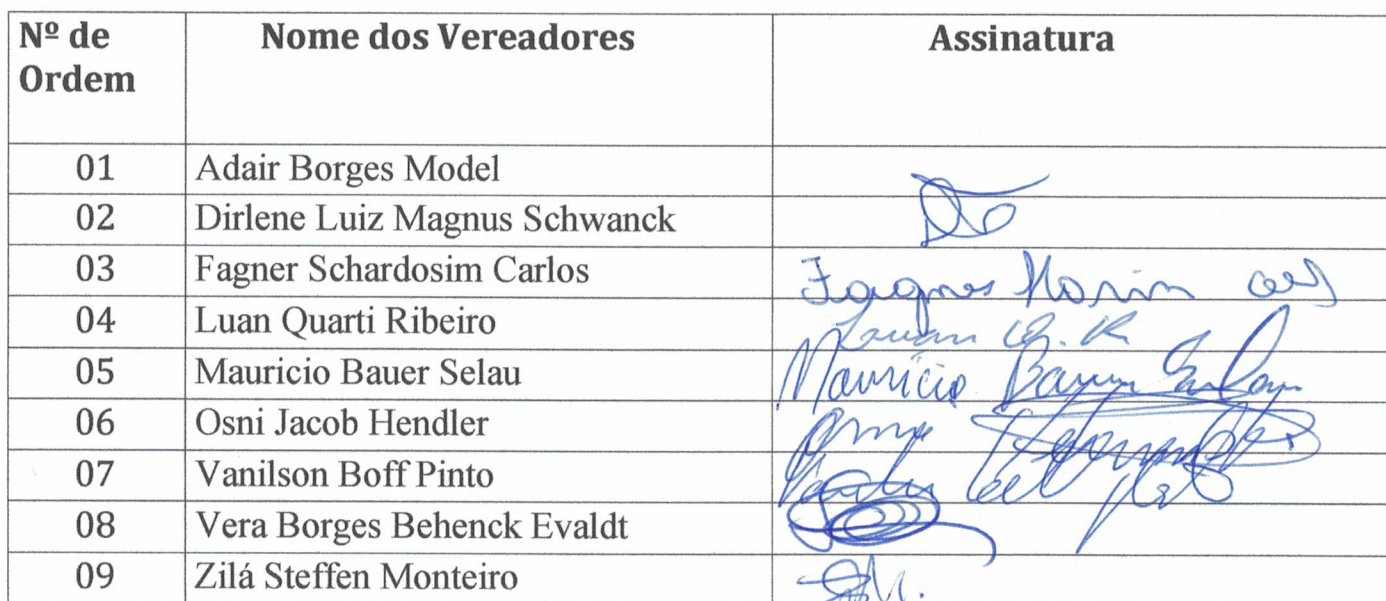 Nº de Ordem Nome dos Vereadores Assinatura
01 Adair Borges Model
02 Dirlene Luiz Magnus Schwanck
03 Fagner Schardosim Carlos Fagner
04 Luan Quarti Ribeiro Luan Q. R
05 Mauricio Bauer Selau Mauricio Bauer Selau
06 Osni Jacob Hendler
07 Vanilson Boff Pinto
08 Vera Borges Behenck Evaldt
09 Zilá Steffen Monteiro